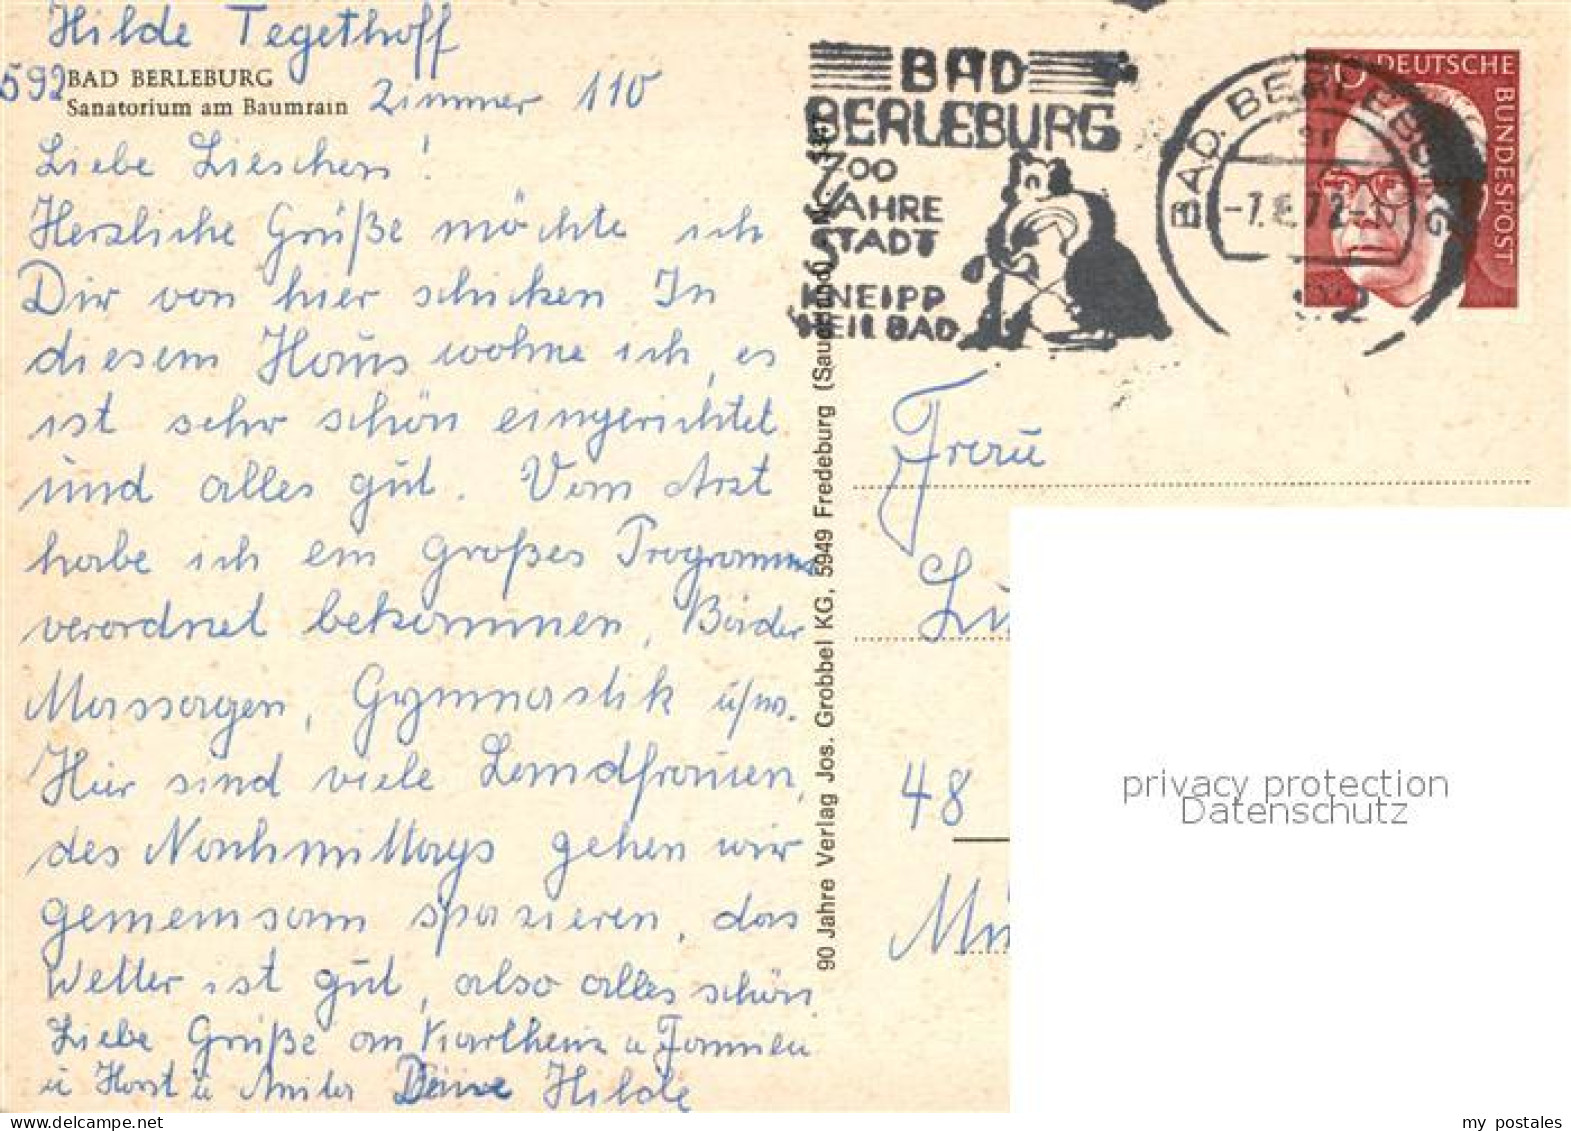 Hilde Tegethoff
592 BAD BERLEBURG
Sanatorium am Baumrain Zimmer 110
Liebe Lieschen!
Herzliche Grüße möchte ich
Dir von hier schicken In
diesem Haus wohne ich, es
ist sehr schön eingerichtet
und alles gut. Vom Arzt
habe ich ein großes Programm
verordnet bekommen, Bäder
Massagen, Gymnastik usw.
Hier sind viele Landfrauen,
des Nachmittags gehen wir
gemeinsam spazieren, das
Wetter ist gut, also alles schön
Liebe Grüße an Karlheinz u
u Horst u Deine Hilde
90 Jahre Verlag Jos. Grobbel KG, 5949 Fredeburg (Sauerland)
BAD
BERLEBURG
700
JAHRE
STADT
KNEIPP
HEILBAD
BAD BERLEBURG
DEUTSCHE
BUNDESPOST
Frau
48
privacy protection
Datenschutz
my postales